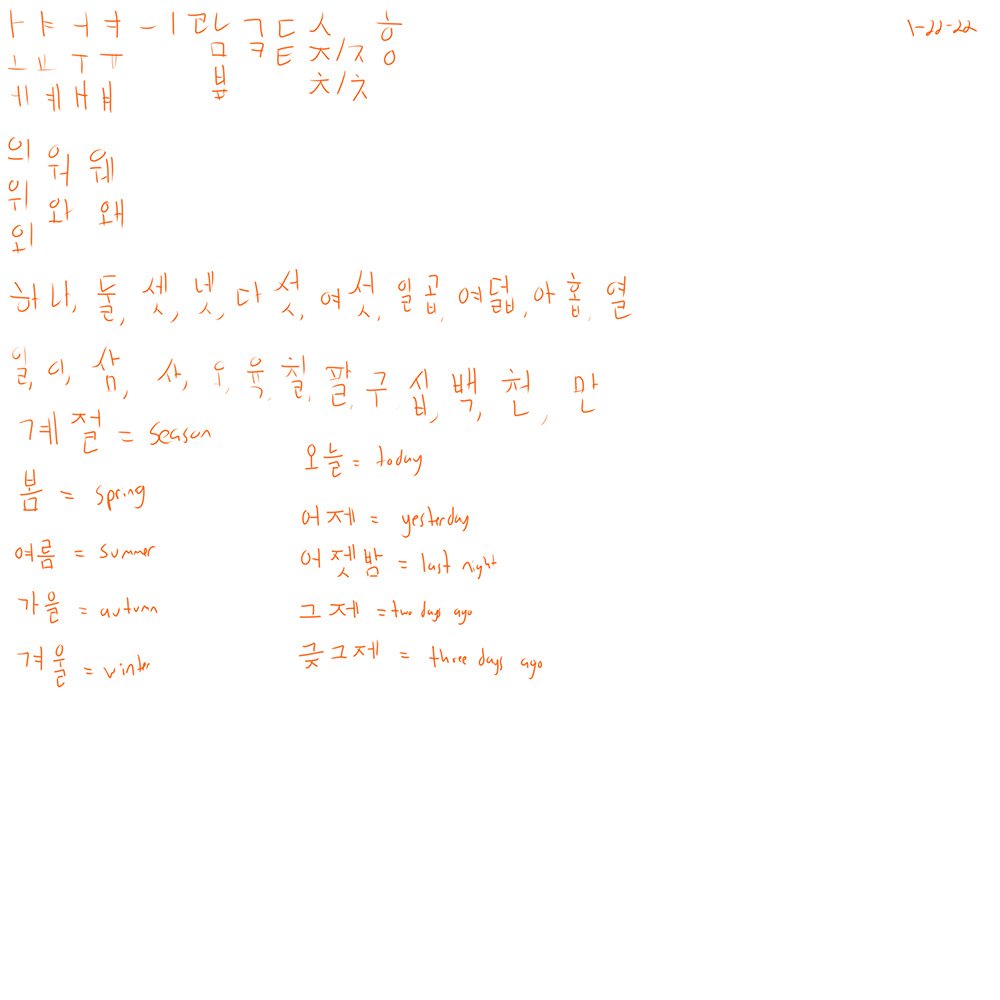 ㅏ ㅑ ㅓ ㅕ ㅡ ㅣ ㄹ ㄴ ㄱ ㄷ ㅅ ㅎ 1-22-22
ㅗ ㅛ ㅜ ㅠ ㅁ ㅋ ㅌ ㅈ/ㅈ ㅇ
ㅔ ㅖ ㅐ ㅒ ㅂ ㅊ/ㅊ
ㅍ
의 워 웨
위 와 왜
외
하나, 둘, 셋, 넷, 다섯, 여섯, 일곱, 여덟, 아홉, 열
일, 이, 삼, 사, 오, 육, 칠, 팔, 구, 십, 백, 천, 만
계절 = season
오늘 = today
봄 = spring
어제 = yesterday
여름 = summer
어젯밤 = last night
가을 = autumn
그제 = two days ago
겨울 = winter
긎그제 = three days ago